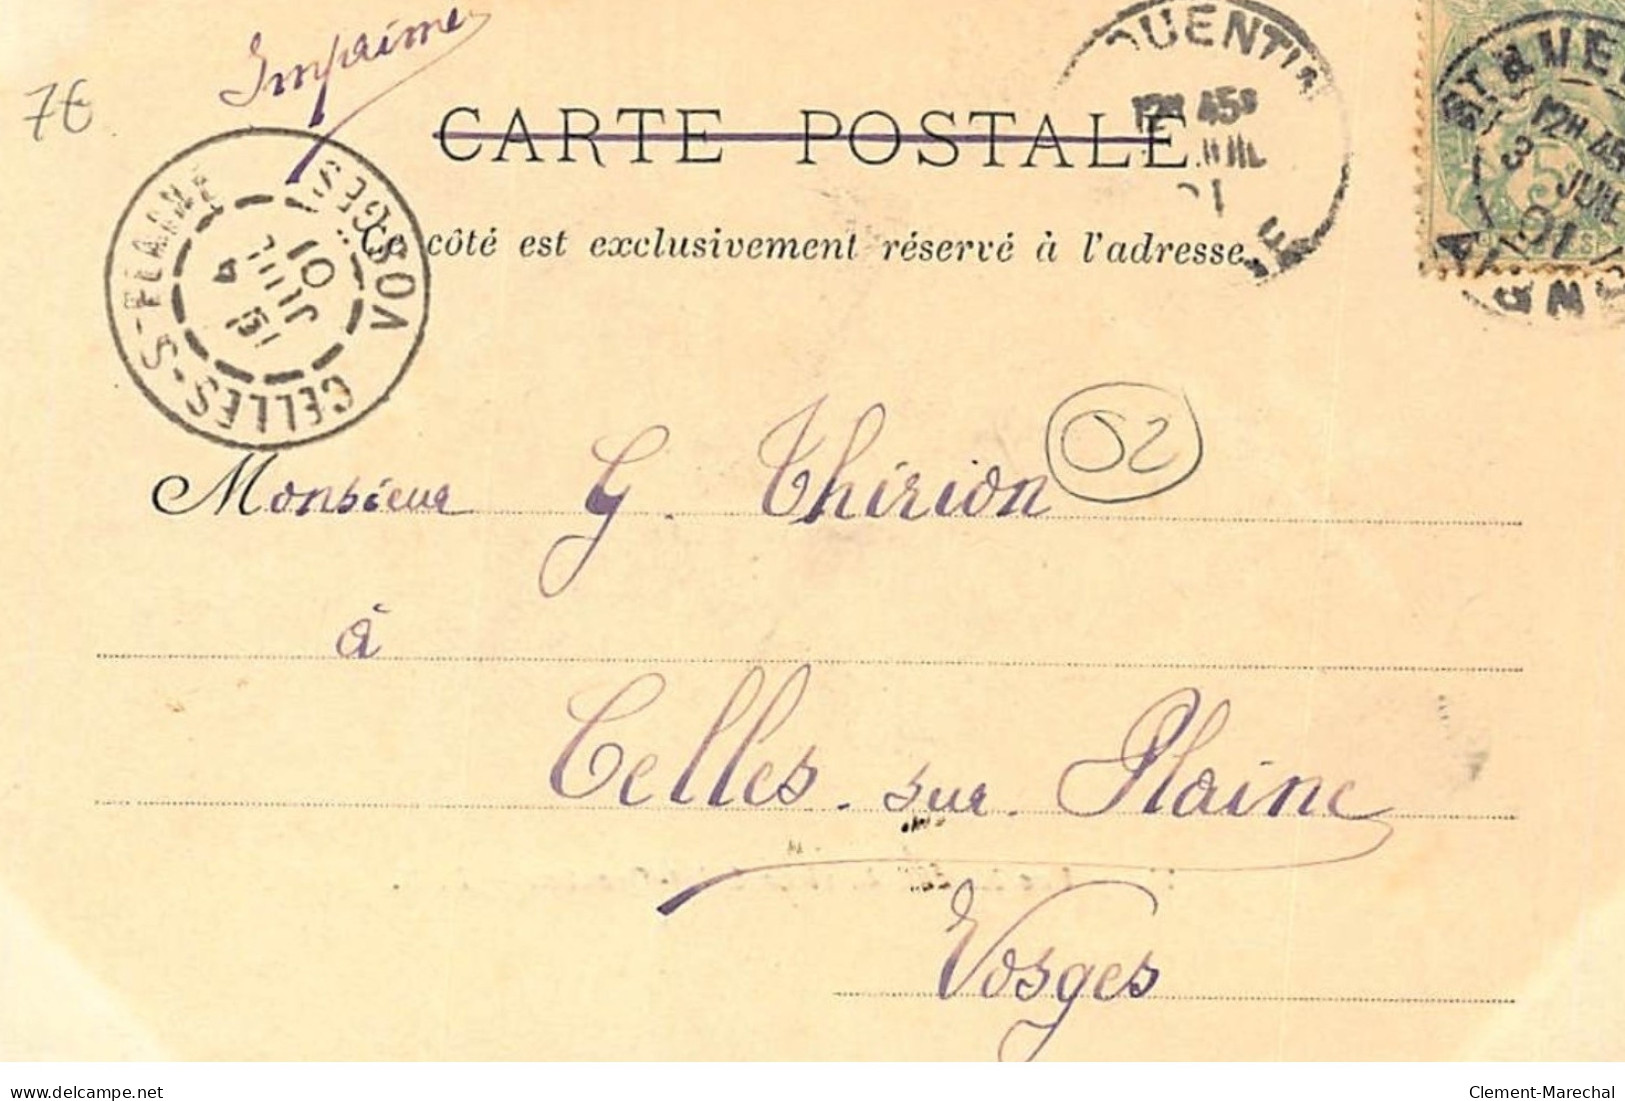 Imprimé
7€
CARTE POSTALE
Ce côté est exclusivement réservé à l'adresse
VOSGES
CELLES-S-PLAINE
15
4
JUIL
01
QUENTIN
12H 45
12H 45
3 JUIL
01
AISNE
5
52
Monsieur G. Thirion
à
Celles-sur-Plaine
Vosges
delcampe.net
Clement-Marechal